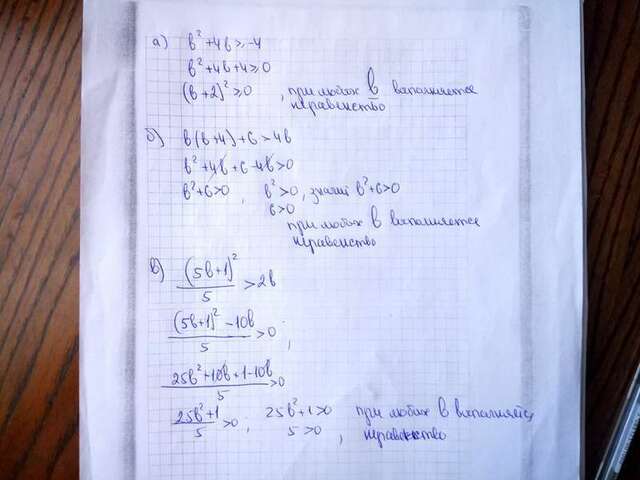 а) b² + 4b ≥ -4
b² + 4b + 4 ≥ 0
(b + 2)² ≥ 0 , при любых b выполняется
неравенство
б) b(b + 4) + 6 > 4b
b² + 4b + 6 - 4b > 0
b² + 6 > 0 , b² > 0 , значит b² + 6 > 0
6 > 0
при любых b выполняется
неравенство
в) (5b + 1)² / 5 > 2b
((5b + 1)² - 10b) / 5 > 0 ;
(25b² + 10b + 1 - 10b) / 5 > 0
(25b² + 1) / 5 > 0 ; 25b² + 1 > 0 при любых b выполняется
5 > 0 , неравенство